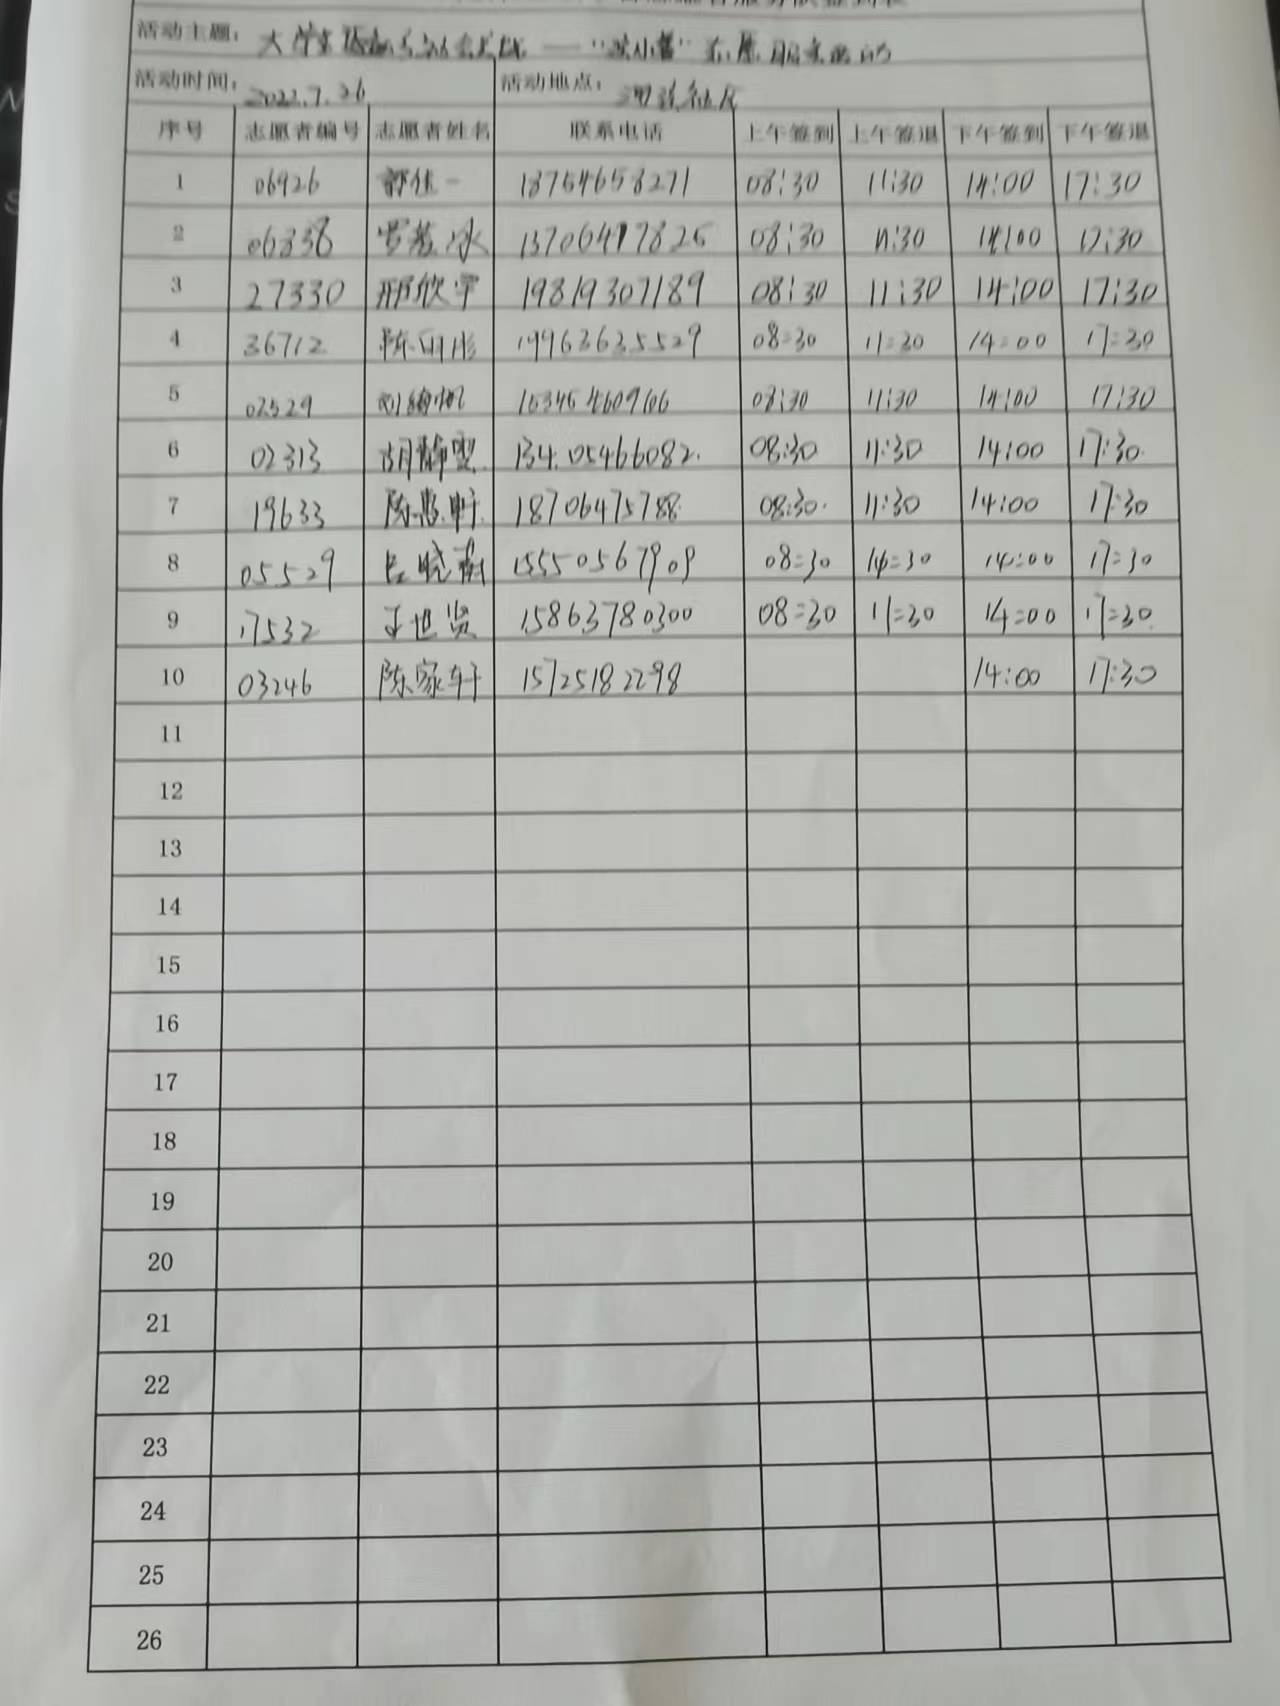 活动主题：大学生返家乡社会实践——
活动时间：2022.7.26 活动地点：
序号 志愿者编号 志愿者姓名 联系电话 上午签到 上午签退 下午签到 下午签退
1 06926 18754658271 08:30 11:30 14:00 17:30
2 06338 13706417825 08:30 11:30 14:00 17:30
3 27330 邢欣宇 19819307189 08:30 11:30 14:00 17:30
4 36712 19963635529 08:30 11:30 14:00 17:30
5 02529 08:30 11:30 14:00 17:30
6 02313 胡静雯 13405466082 08:30 11:30 14:00 17:30
7 19633 18706475788 08:30 11:30 14:00 17:30
8 05529 吕晓雨 15550567909 08:30 14:30 14:00 17:30
9 17532 王世贤 15863780300 08:30 11:30 14:00 17:30
10 03246 陈家轩 15725182298 14:00 17:30
11
12
13
14
15
16
17
18
19
20
21
22
23
24
25
26